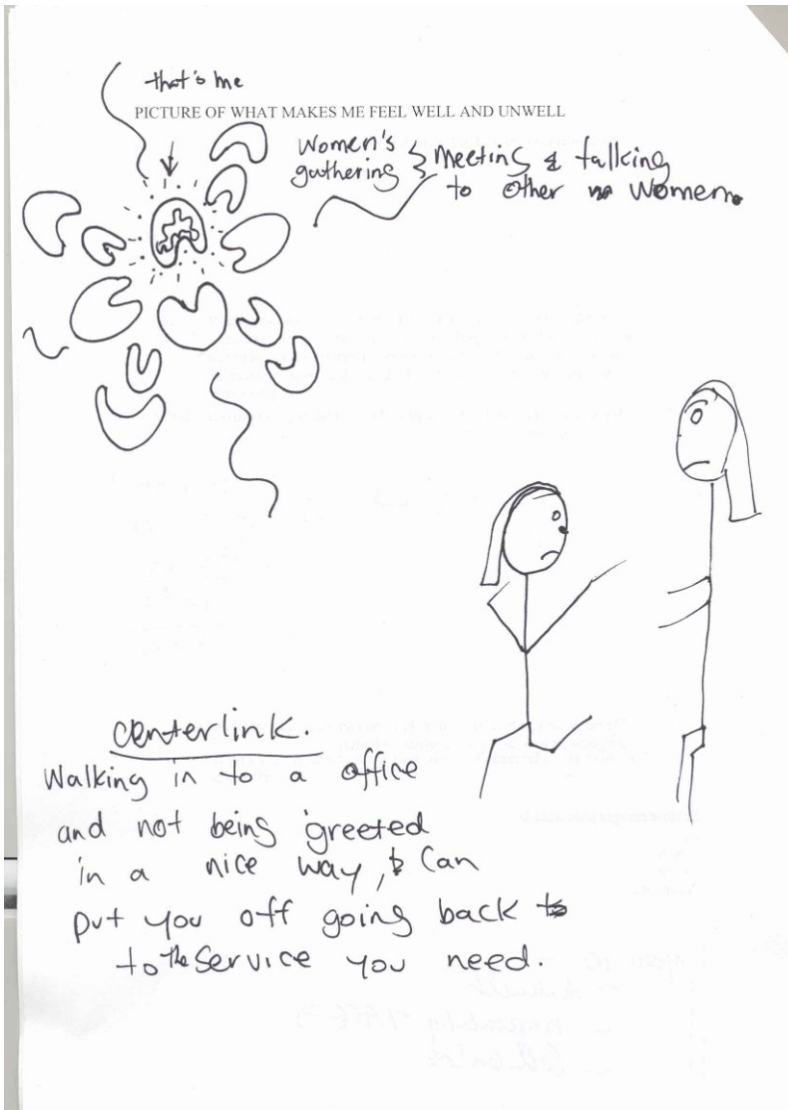 that's me
PICTURE OF WHAT MAKES ME FEEL WELL AND UNWELL
Women's gathering } Meeting & talking
to other women.
Centerlink.
Walking in to a office
and not being greeted
in a nice way, & Can
put you off going back to
to the Service you need.